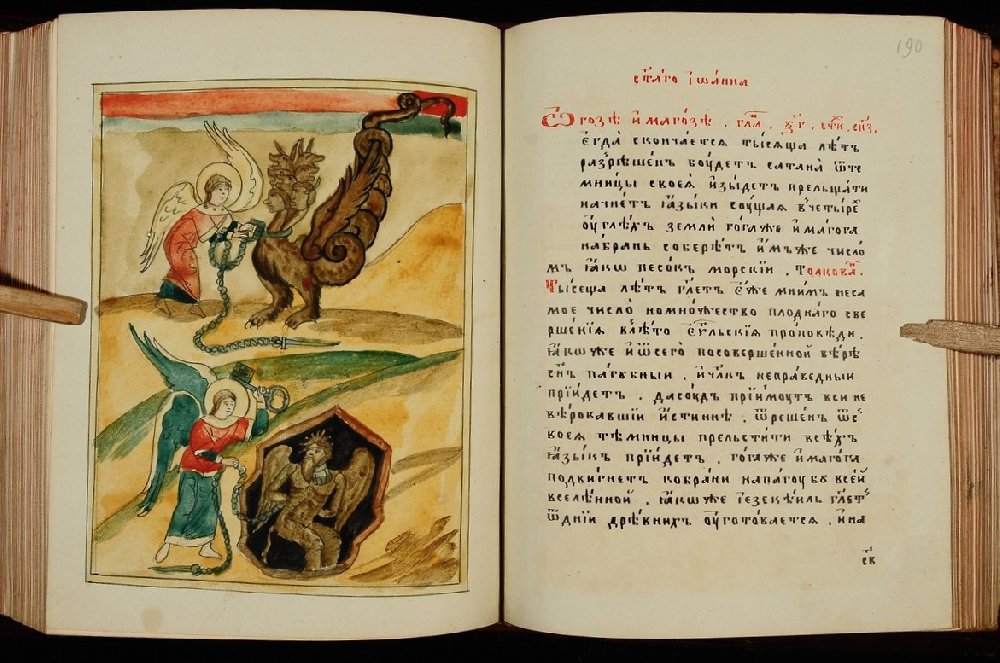 190
ст҃а́го і҆ѡа́нна
Ѡ҆ го́зѣ и҆ маго́зѣ . гл҃а , ѯ҃г . ст҃и , сп҃з .
Е҆гда̀ сконча́ется ты́сѧща лѣ́тъ
разрѣше́нъ бꙋ́детъ сатана̀ ѿ те
мни́цы своеѧ̀ и҆зы́детъ прельща́ти
начне́тъ ꙗ҆зы́ки сꙋ́щаѧ в четы́ре
ѹ҆глѣ́хъ землѝ го́га же и҆ маго́га
на бра́нь собере́тъ и҆́мъ же число̀
мъ ꙗ҆́кѡ песо́къ морскі́и . Толкова́н .
Ты́сеща лѣ́тъ гл҃етъ Е҆́же мни́мъ не са
мое число̀ но мно́жество пло́днаго све
рше́нїѧ в лѣ́то Е҆ѵⷢ҇льскїѧ про́повѣди .
ꙗ҆́коже и҆ ѿ сего̀ по соверше́нной вѣ́рѣ
сн҃ъ па́губныи , и҆ чл҃къ непра́ведныи
прїи́детъ , да сꙋ́дъ прїи́мꙋтъ вси не
вѣ́ровавшїи и҆́стиннѣ , ѿрѣше́нъ ѿ с
воеѧ̀ те́мницы прельсти́ти всѣ́хъ
ꙗ҆зы́къ прїи́детъ . го́га же и҆ маго́га
подви́гнетъ ко бра́ни на па́гꙋбꙋ все́й
вселе́нной , ꙗ҆́коже і҆езекі́иль гл҃етъ
ѿ дні́и дре́внихъ ѹ҆гото́ваетсѧ , и҆ на
ск